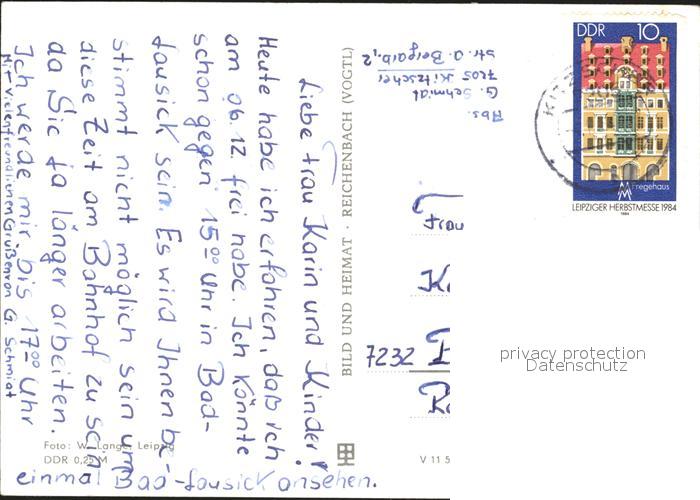 Liebe Frau Karin und Kinder!
Heute habe ich erfahren, daß ich
am 06.12. frei habe. Ich könnte
schon gegen 15⁰⁰ Uhr in Bad-
lausick sein. Es wird Ihnen be-
stimmt nicht möglich sein um
diese Zeit am Bahnhof zu sein
da Sie ja länger arbeiten.
Ich werde mir bis 17⁰⁰ Uhr
einmal Bad-lausick ansehen.
Mit vielen freundlichen Grüßen von G. Schmidt
Foto: W. Lange, Leipzig
DDR 0,25 M
BILD UND HEIMAT · REICHENBACH (VOGTL)
V 11 5
Abs.
G. Schmidt
7205 Kitzscher
Str. d. Bergarb. 2
DDR 10
Fregehaus
LEIPZIGER HERBSTMESSE 1984
1984
Frau
7232
privacy protection
Datenschutz